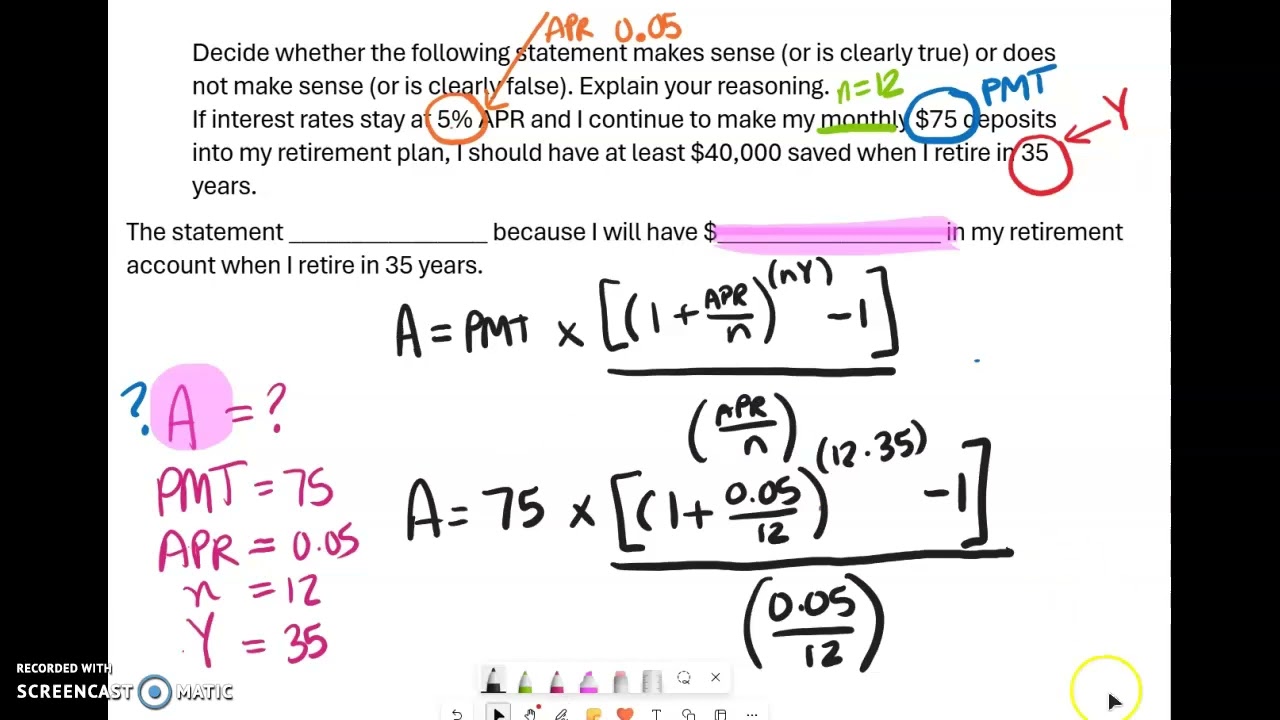 APR 0.05
Decide whether the following statement makes sense (or is clearly true) or does
not make sense (or is clearly false). Explain your reasoning. n=12 PMT
If interest rates stay at 5% APR and I continue to make my monthly $75 deposits Y
into my retirement plan, I should have at least $40,000 saved when I retire in 35
years.
The statement __________________ because I will have $____________________ in my retirement
account when I retire in 35 years.
A = PMT × [(1 + APR/n)^(nY) - 1]
(APR/n)
? A = ?
PMT = 75
APR = 0.05
n = 12
Y = 35
A = 75 × [(1 + 0.05/12)^(12·35) - 1]
(0.05/12)
RECORDED WITH
SCREENCAST MATIC